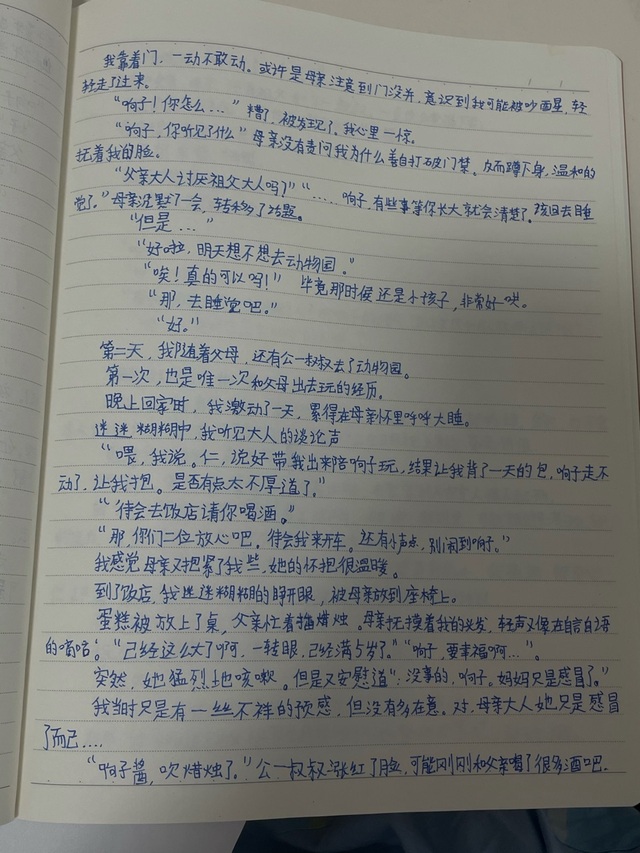 我靠着门，一动不敢动。或许是母亲注意到门没关，意识到我可能被吵醒，轻
轻走了过来。
“响子！你怎么...”糟了，被发现了。我心里一惊。
“响子，你听见了什么”母亲没有责问我为什么善自打破门禁。反而蹲下身，温和的
抚着我的脸。
“父亲大人讨厌祖父大人吗？”“......响子，有些事等你长大就会清楚了。该回去睡
觉了。”母亲沉默了一会，转移了话题。
“但是...”
“好啦，明天想不想去动物园。”
“唉！真的可以吗！”毕竟那时候还是小孩子，非常好哄。
“那，去睡觉吧。”
“好。”
第二天，我随着父母，还有公一叔叔去了动物园。
第一次，也是唯一次和父母出去玩的经历。
晚上回家时，我激动了一天，累得在母亲怀里呼呼大睡。
迷迷糊糊中，我听见大人的谈论声
“喂，我说。仁，说好带我出来陪响子玩，结果让我背了一天的包，响子走不
动了，让我扌包。是否有点太不厚道了。”
“待会去饭店请你喝酒。”
“那，你们二位放心吧。待会我来开车。还有小声点，别闹到响子。”
我感觉母亲又把紧了我些，她的怀抱很温暖。
到了饭店，我迷迷糊糊的睁开眼，被母亲放到座椅上。
蛋糕被放上了桌，父亲忙着插蜡烛。母亲抚摸着我的头发，轻声又像在自言自语
的嘀咕：“已经这么大了啊，一转眼，已经满5岁了。”“响子，要幸福啊...”。
突然，她猛烈地咳嗽。但是又安慰道“：没事的，响子。妈妈只是感冒了。”
我当时只是有一丝不祥的预感，但没有多在意。对，母亲大人她只是感冒
了而已....
“响子酱，吹蜡烛了。”公一叔叔涨红了脸，可能刚刚和父亲喝了很多酒吧.